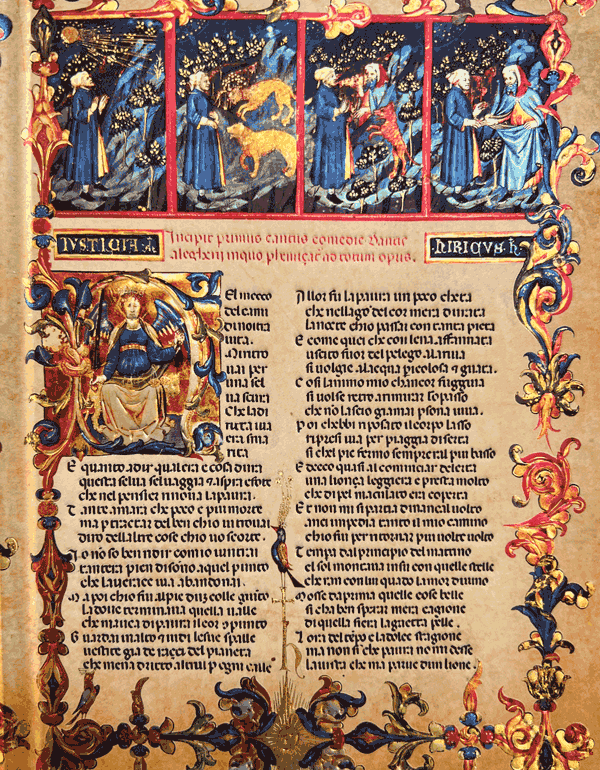 IVSTICIA
Incipit primus cantus comedie Dantis
alegherii in quo
ad totum opus.
El meçço
del cami
di nostra
uita.
Mi ritro
uai per
una sel
ua scura
Che la di
ritta uia
era sma
rita
E quanto adir qual era e cosa dura
questa selua seluaggia 7 aspra e forte
che nel pensier rinoua la paura.
T ante amara che poco e piu morte
ma p tractar del ben chio ui trouai
diro dellaltre cose chio uo scorte.
I o no so ben ridir comio uintrai
tantera pien di sono aquel punto
che la uerace uia abandonai.
M a poi chio fui alpie dun colle giunto
la doue terminaua quella ualle
che mauea di paura il cor 9punto
G uardai inalto 7 uidi lesue spalle
uestite gia de raggi del pianeta
che mena dritto altrui p ogni calle
A llor fu la paura un poco cheta
che nellago del cor mera durata
la nocte chio passai con tanta pieta
E come quei che con lena affannata
uscito fuor del pelego ala riua
si uolgie alacqua picolosa 7 guata.
C osi lanimo mio chancor fuggiua
si uolse retro arimirar lo passo
che nō lascio giamai psona uiua.
P oi chebbi riposato il corpo lasso
ripresi uia per piaggia diserta
si chel pie fermo sempre ral piu basso
E decco quasi al cominciar delerta
una lionça leggiera e presta molto
che di pel maculato era coperta
E t non mi si partia dinançi al uolto
anci impedia tanto il mio camino
chio fui per ritornar piu uolte uolto
T empo dal principio del mattino
el sol montaua insu con quelle stelle
cheran con lui quādo lamor diuino
M osse daprima quelle cose belle
si cha ben sperar mera cagione
di quella fiera la gaetta pelle.
L ora del tēpo e la dolce stagione
ma non si che paura no mi desse
la uista che ma parue dun lione.